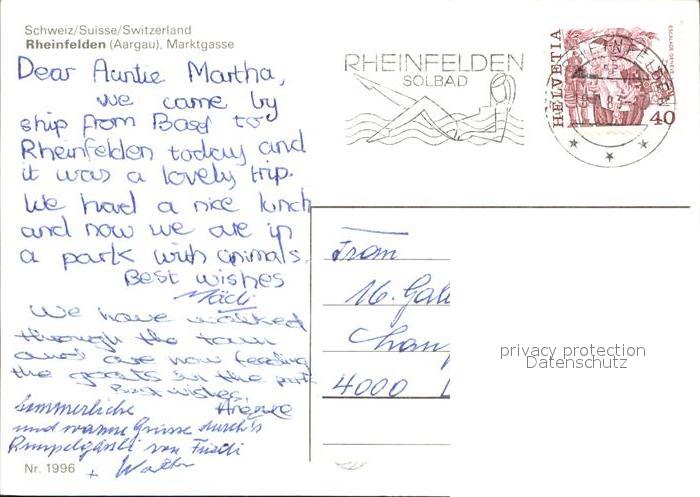 Schweiz/Suisse/Switzerland
Rheinfelden (Aargau), Marktgasse
Dear Auntie Martha,
we came by
ship from Basel to
Rheinfelden today and
it was a lovely trip.
We had a nice lunch
and now we are in
a park with animals.
Best wishes
Mädi
We have walked
through the town
and are now feeding
the goats in the park
Best wishes.
Sommerliche
und warme Grüsse durch's
Rumpelgässli von Friedi
+ Walter
Nr. 1996
RHEINFELDEN
SOLBAD
HELVETIA
40
RHEINFELDEN
Frau
16. Gale
Cham
4000
privacy protection
Datenschutz